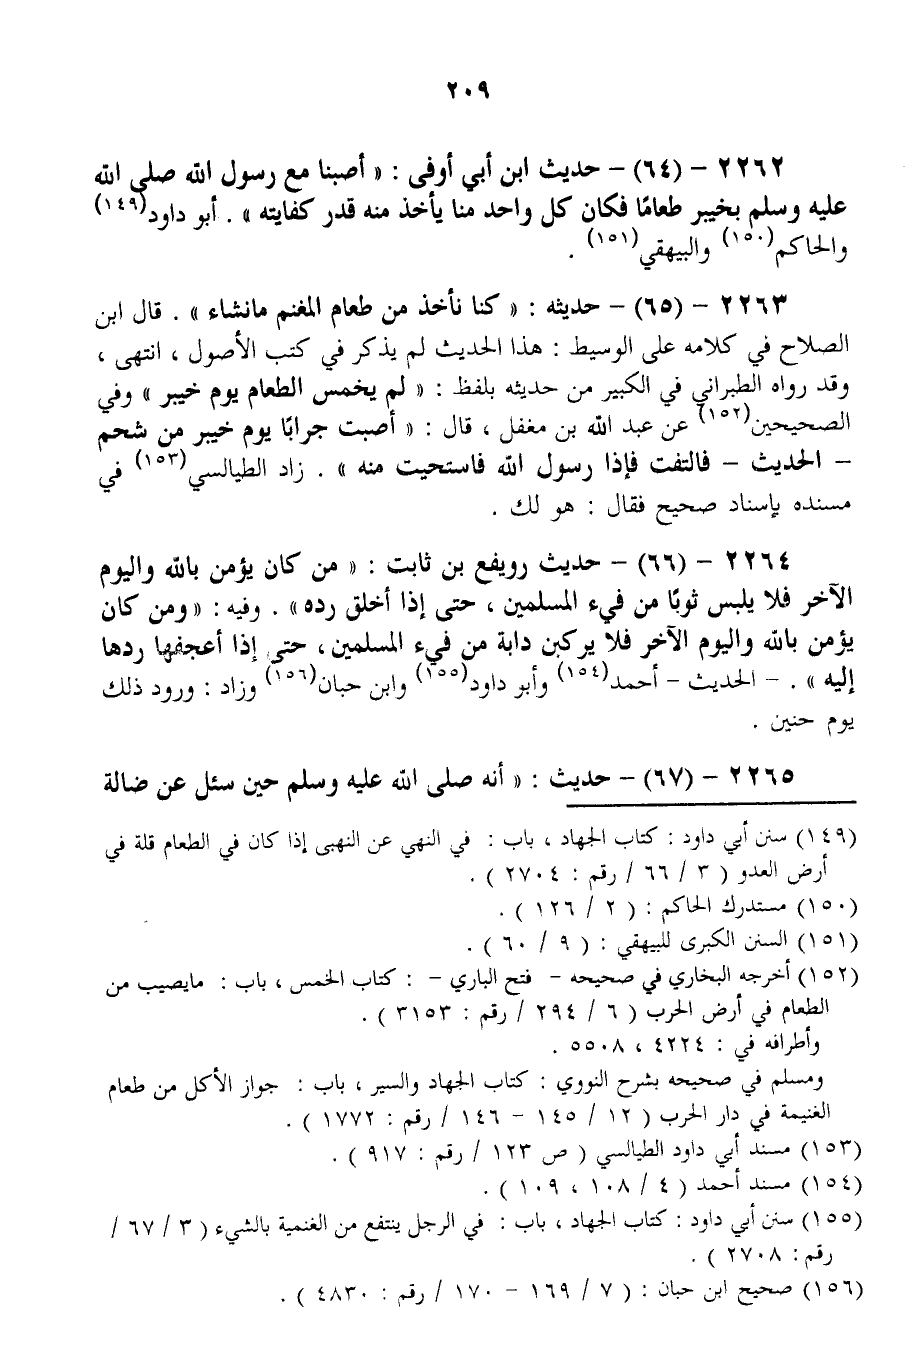 ٢٠٩
٢٢٦٢ – (٦٤) – حديث ابن أبي أوفى : « أصبنا مع رسول الله صلى الله
عليه وسلم بخيبر طعامًا فكان كل واحد منا يأخذ منه قدر كفايته » . أبو داود(١٤٩)
والحاكم(١٥٠) والبيهقي(١٥١) .
٢٢٦٣ – (٦٥) – حديثه : « كنا نأخذ من طعام المغنم مانشاء » . قال ابن
الصلاح في كلامه على الوسيط : هذا الحديث لم يذكر في كتب الأصول ، انتهى ،
وقد رواه الطبراني في الكبير من حديثه بلفظ : « لم يخمس الطعام يوم خيبر » وفي
الصحيحين(١٥٢) عن عبد الله بن مغفل ، قال : « أصبت جرابًا يوم خيبر من شحم
– الحديث – فالتفت فإذا رسول الله فاستحيت منه » . زاد الطيالسي(١٥٣) في
مسنده بإسناد صحيح فقال : هو لك .
٢٢٦٤ – (٦٦) – حديث رويفع بن ثابت : « من كان يؤمن بالله واليوم
الآخر فلا يلبس ثوبًا من فيء المسلمين ، حتى إذا أخلق رده» . وفيه : «ومن كان
يؤمن بالله واليوم الآخر فلا يركبن دابة من فيء المسلمين، حتى إذا أعجفها ردها
إليه » . – الحديث – أحمد(١٥٤) وأبو داود(١٥٥) وابن حبان(١٥٦) وزاد : ورود ذلك
يوم حنين .
٢٢٦٥ – (٦٧) – حديث : « أنه صلى الله عليه وسلم حين سئل عن ضالة
(١٤٩) سنن أبي داود : كتاب الجهاد ، باب : في النهي عن النهبى إذا كان في الطعام قلة في
أرض العدو ( ٣ / ٦٦ / رقم : ٢٧٠٤ ) .
(١٥٠) مستدرك الحاكم : ( ٢ / ١٢٦ ) .
(١٥١) السنن الكبرى للبيهقي : ( ٩ / ٦٠ ) .
(١٥٢) أخرجه البخاري في صحيحه – فتح الباري – : كتاب الخمس ، باب : مايصيب من
الطعام في أرض الحرب ( ٦ / ٢٩٤ / رقم : ٣١٥٣ ) .
وأطرافه في : ٤٢٢٤ ، ٥٥٠٨ .
ومسلم في صحيحه بشرح النووي : كتاب الجهاد والسير ، باب : جواز الأكل من طعام
الغنيمة في دار الحرب ( ١٢ / ١٤٥ – ١٤٦ / رقم : ١٧٧٢ ) .
(١٥٣) مسند أبي داود الطيالسي ( ص ١٢٣ / رقم : ٩١٧ ) .
(١٥٤) مسند أحمد ( ٤ / ١٠٨ ، ١٠٩ ) .
(١٥٥) سنن أبي داود : كتاب الجهاد ، باب : في الرجل ينتفع من الغنمية بالشيء ( ٣ / ٦٧ /
رقم: ٢٧٠٨ ) .
(١٥٦) صحيح ابن حبان : ( ٧ / ١٦٩ – ١٧٠ / رقم : ٤٨٣٠ ) .